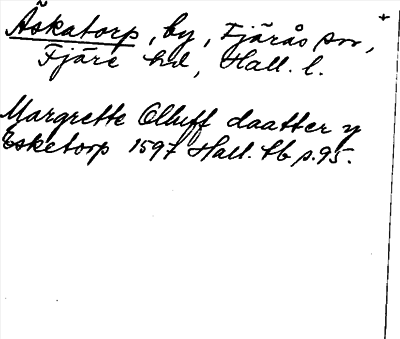 Äskatorp, by, Fjärås sn, +
Fjäre hd, Hall. l.
Margrette Olluff daatter y
Esketorp 1597 Hall. tb s.95.